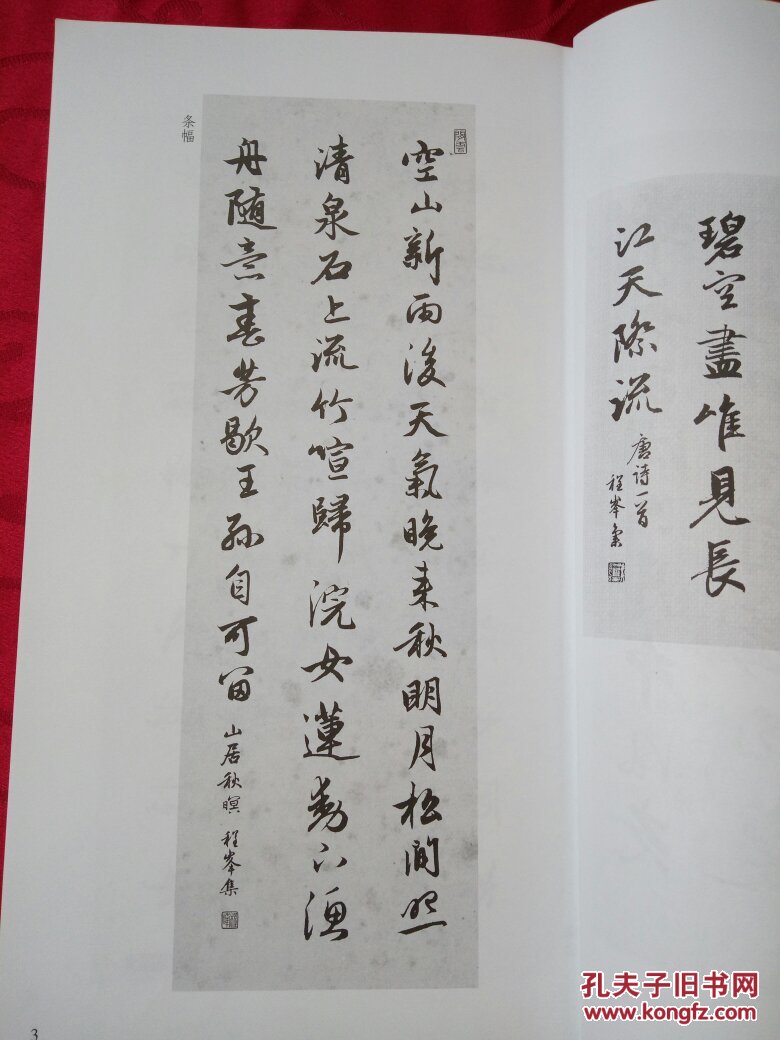 条幅
空山新雨後天氣晚来秋明月松间照
清泉石上流竹喧歸浣女蓮動下漁
舟随意春芳歇王孫自可留
山居秋暝 程峯集
碧空盡唯見長
江天際流
唐诗一首
程峯集
3
孔夫子旧书网
www.kongfz.com